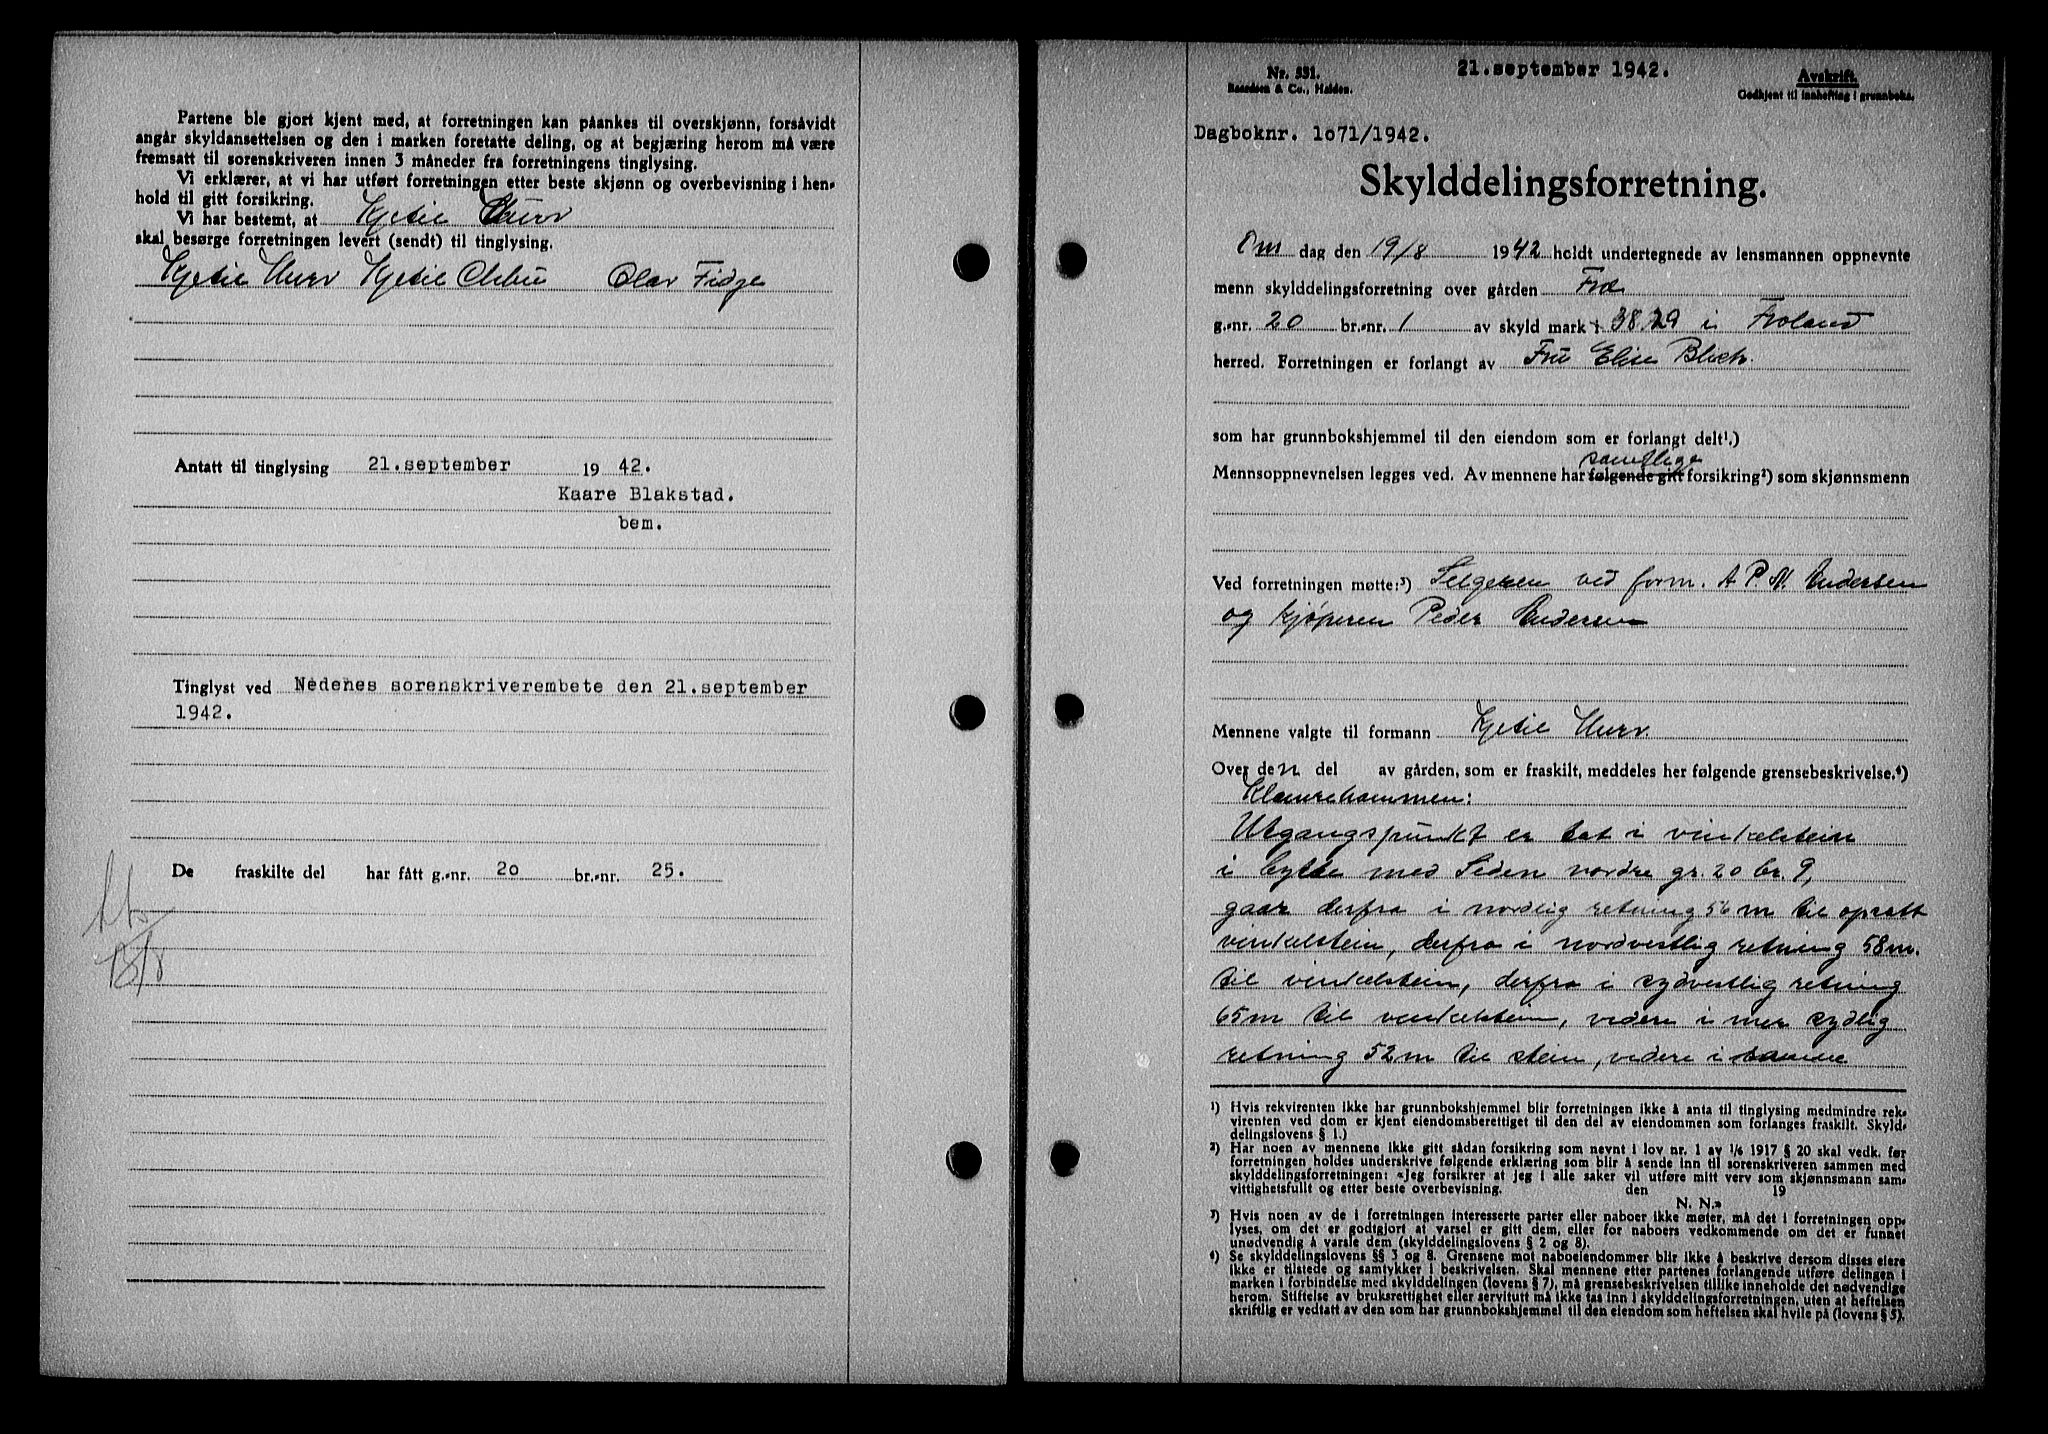 Partene ble gjort kjent med, at forretningen kan påankes til overskjønn, forsåvidt
angår skyldansettelsen og den i marken foretatte deling, og at begjæring herom må være
fremsatt til sorenskriveren innen 3 måneder fra forretningens tinglysing.
Vi erklærer, at vi har utført forretningen etter beste skjønn og overbevisning i hen-
hold til gitt forsikring.
Vi har bestemt, at Kjetil Hurv
skal besørge forretningen levert (sendt) til tinglysing.
Kjetil Hurv Kjetil Olav
Antatt til tinglysing 21.september 1942.
Kaare Blakstad.
bem.
Tinglyst ved Nedenes sorenskriverembete den 21.september
1942.
De fraskilte del har fått g.-nr. 20 br.-nr. 25.
Nr. 531.
21.september 1942.
Avskrift.
Baardsen & Co., Halden.
Godkjent til innhefting i grunnboka.
Dagboknr. 1071/1942.
Skylddelingsforretning.
Om dag den 19/8 1942 holdt undertegnede av lensmannen oppnevnte
menn skylddelingsforretning over gården Fra
g.-nr. 20 br.-nr. 1 av skyld mark 38.29 i Froland
herred. Forretningen er forlangt av Fru Elise Blich.
som har grunnbokshjemmel til den eiendom som er forlangt delt¹.)
samtlige
Mennsoppnevnelsen legges ved. Av mennene har følgende gitt forsikring²) som skjønnsmenn
Ved forretningen møtte:³) Selgeren ved form. A P. M. Andersen
og kjøperen Peder Andersen
Mennene valgte til formann Kjetil Hurv.
Over den del av gården, som er fraskilt, meddeles her følgende grensebeskrivelse.⁴)
Utgangspunkt er tat i vinkelstein
i bytte med Seden nordre gr. 20 br. 9,
gaar derfra i nordlig retning 56 m til opsatt
vinkelstein, derfra i nordvestlig retning 58 m.
til vinkelstein, derfra i sydvestlig retning
65 m til vinkelstein, videre i mer sydlig
retning 52 m til stein, videre i samme
¹) Hvis rekvirenten ikke har grunnbokshjemmel blir forretningen ikke å anta til tinglysing medmindre rek-
virenten ved dom er kjent eiendomsberettiget til den del av eiendommen som forlanges fraskilt. Skyld-
delingslovens § 1.)
²) Har noen av mennene ikke gitt sådan forsikring som nevnt i lov nr. 1 av 1/6 1917 § 20 skal vedk. før
forretningen holdes underskrive følgende erklæring som blir å sende inn til sorenskriveren sammen med
skylddelingsforretningen: «Jeg forsikrer at jeg i alle saker vil utføre mitt verv som skjønnsmann sam-
vittighetsfullt og etter beste overbevisning. den 19
N. N.»
³) Hvis noen av de i forretningen interesserte parter eller naboer ikke møter, må det i forretningen opp-
lyses, om det er godtgjort at varsel er gitt dem, eller for naboers vedkommende om det er funnet
unødvendig å varsle dem (skylddelingslovens § 2 og 8).
⁴) Se skylddelingslovens §§ 3 og 8. Grensene mot naboeiendommer blir ikke å beskrive dersom disses eiere
ikke er tilstede og samtykker i beskrivelsen. Skal mennene etter partenes forlangende utføre delingen i
marken i forbindelse med skylddelingen (lovens § 7), må grensebeskrivelsen tillike inneholde det nødvendige
herom. Stiftelse av bruksrettighet eller servitutt må ikke tas inn i skylddelingsforretningen, uten at heftelsen
skriftlig er vedtatt av den som har grunnbokshjemmel til den eiendom som heftelsen skal hvile på (lovens § 5).